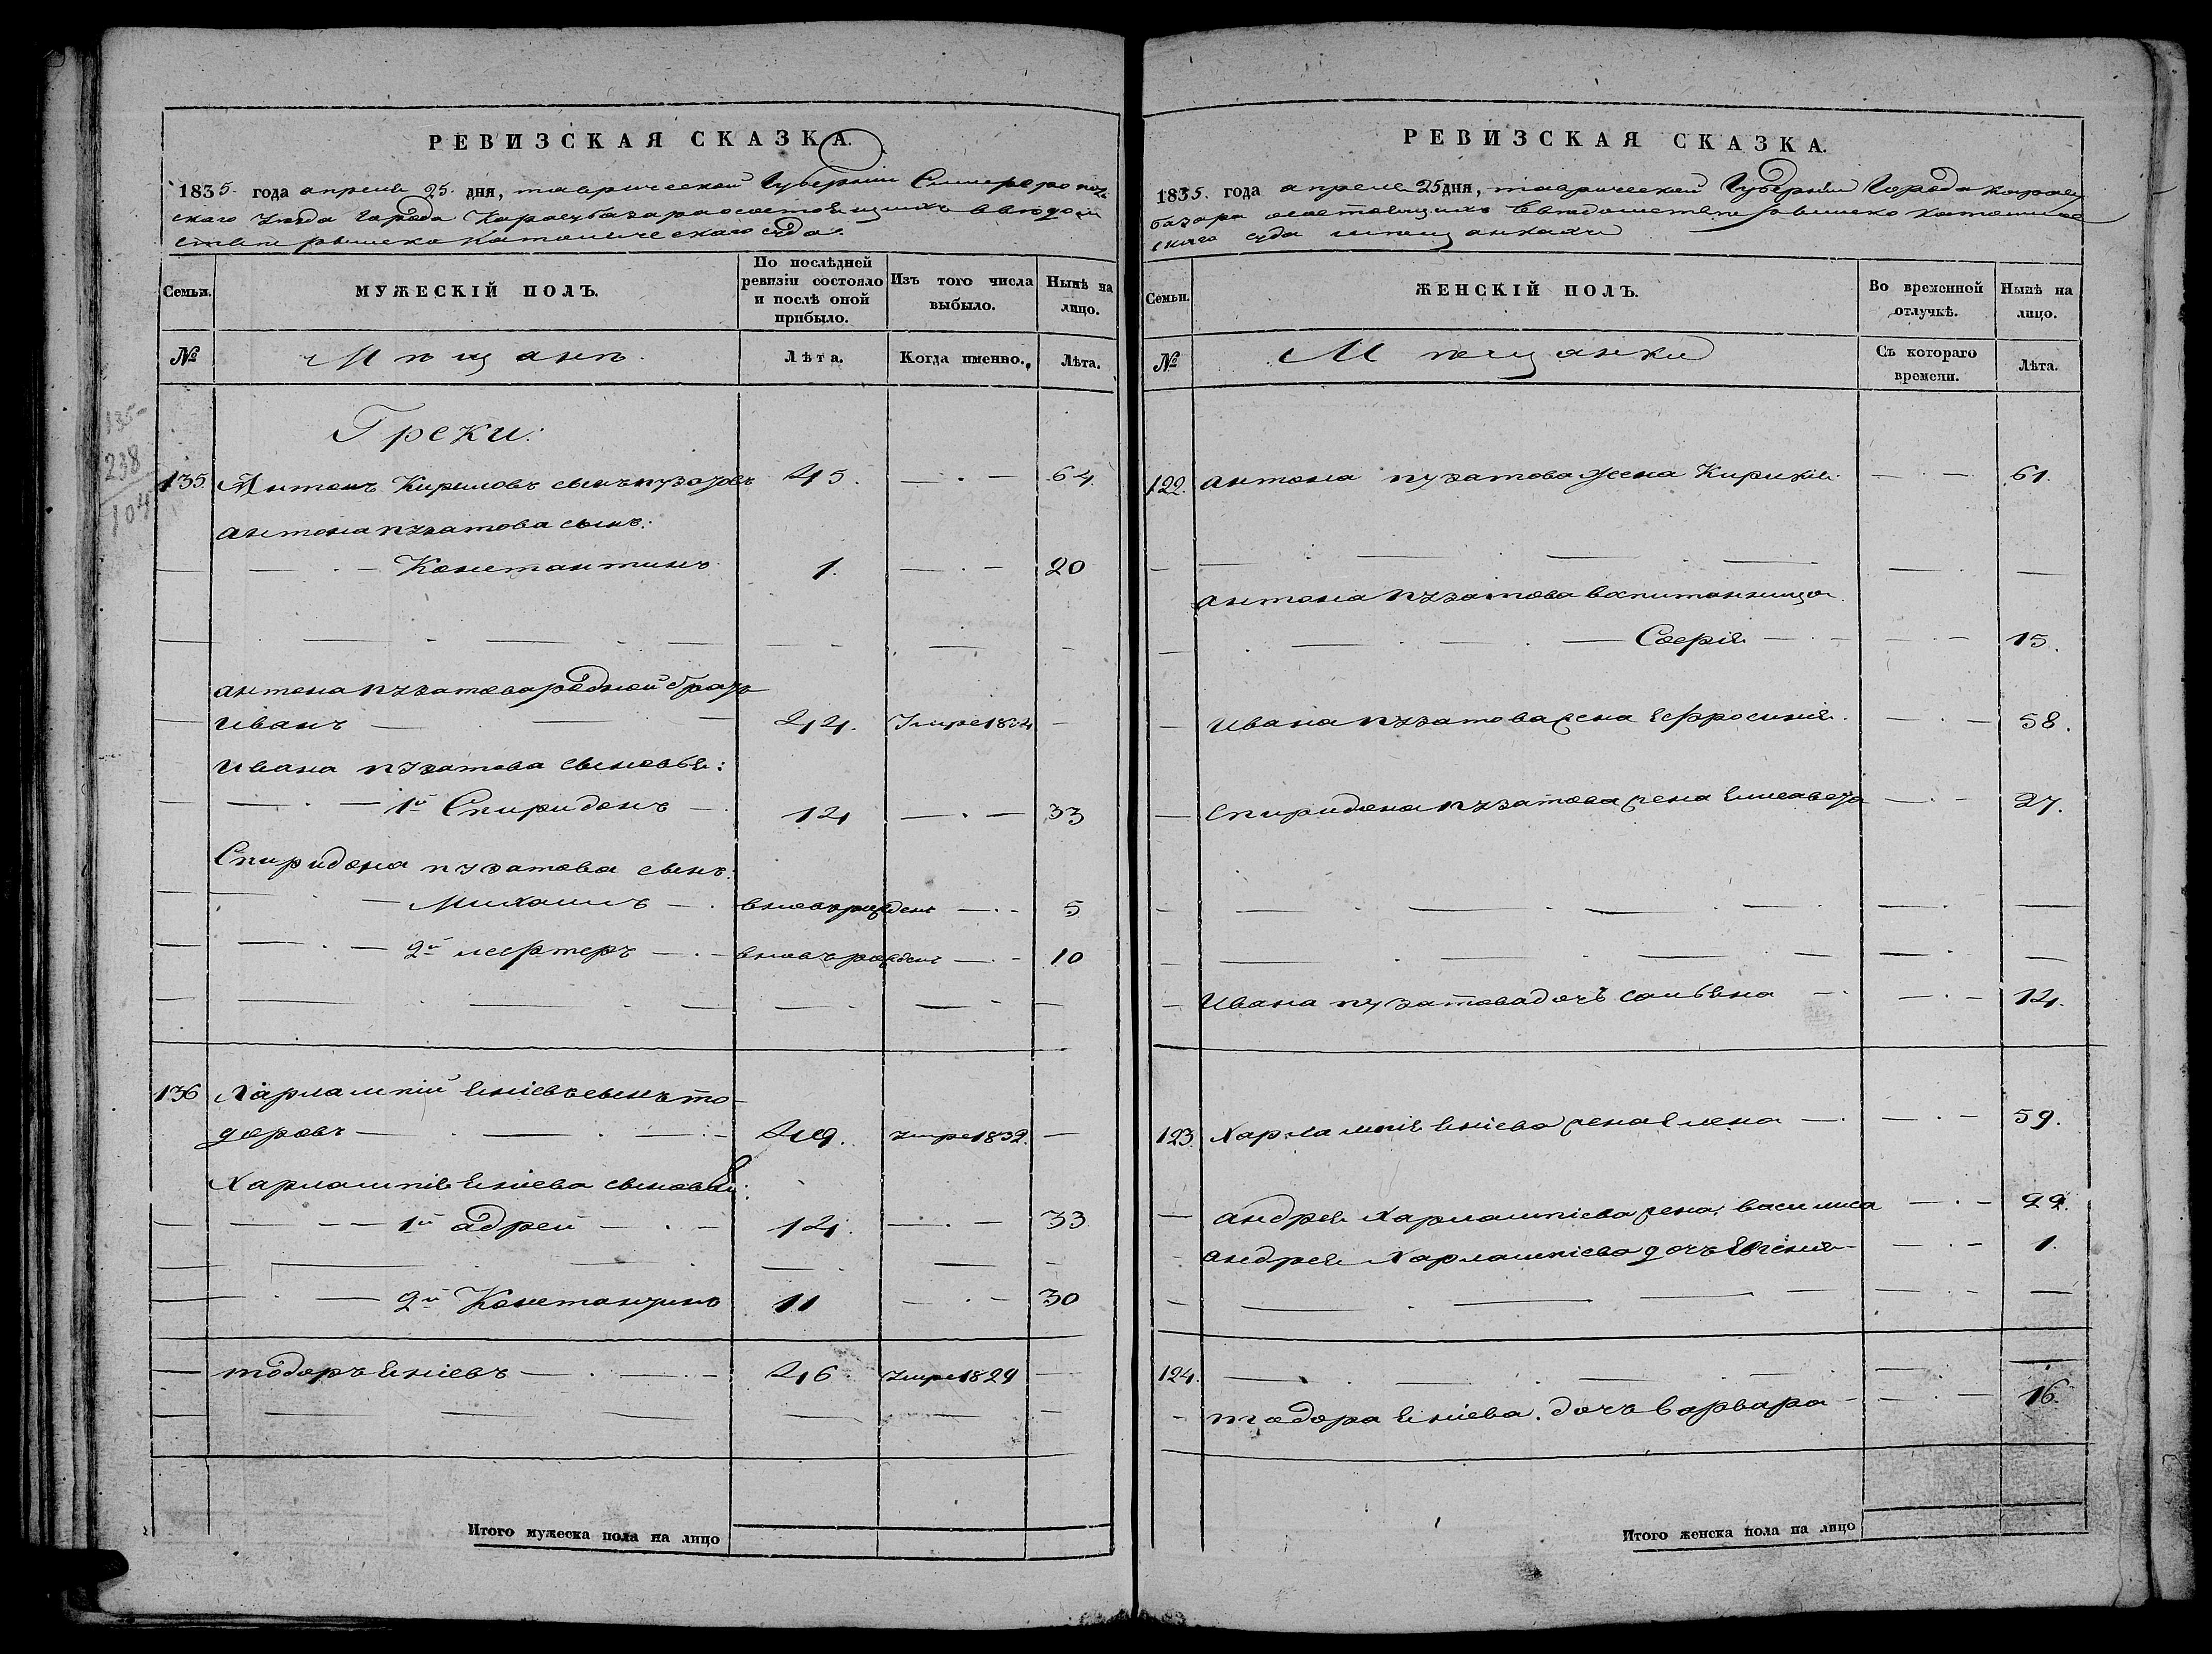 РЕВИЗСКАЯ СКАЗКА.
1835. года апреля 25. дня, таврической Губернии Симферополь
скаго уезда города Карасубазара состоящихъ введом
стве римско католическаго суда.
Семьи. МУЖЕСКІЙ ПОЛЪ. По послѣдней ревизіи состояло и послѣ оной прибыло. Изъ того числа выбыло. Нынѣ на лицо.
№ Мѣщанъ. Лѣта. Когда именно. Лѣта.
135-
238
104
Греки:
135. Антонъ Кириловъ сынъ пузатовъ 45. 64.
антона пузатова сынъ:
Константинъ 1. 20
антона пузатова родной братъ
Иванъ 44. Умре 1834
Ивана пузатова сыновья:
1й Спиридонъ 14 33
Спиридона пузатова сынъ:
Михаилъ вновь рожденъ 5
2й лефтеръ вновь рожденъ 10
136 Харлампий Еніевъ сынъ то-
доровъ 49. умре 1832.
Харлампия Еніева сыновья:
1й адрей 14. 33
2й Константинъ 11 30
тодоръ Еніевъ 46 Умре 1829
Итого мужеска пола на лицо
РЕВИЗСКАЯ СКАЗКА.
1835. года апреля 25 дня, таврической Губернии Города карасу
базара состоящихъ Введомстве римско католиче
скаго суда мещанкахъ
Семьи. ЖЕНСКІЙ ПОЛЪ. Во временной отлучкѣ. Нынѣ на лицо.
№ Мѣщанки Съ котораго времени. Лѣта.
122. антона пузатова жена Кирикия 61.
антона пузатова воспитанница
Софрія 15.
Ивана пузатова жена Ефросиния 58.
Спиридона пузатова жена Елисавета 27.
Ивана пузатова дочь салвена 14.
123. Харлампия Еніева жена Елена 59.
андрея Харлампиева жена василиса 22.
андрея Харлампиева дочь Евгения 1.
124.
тодора Еніева. дочь варвара 16.
Итого женска пола на лицо